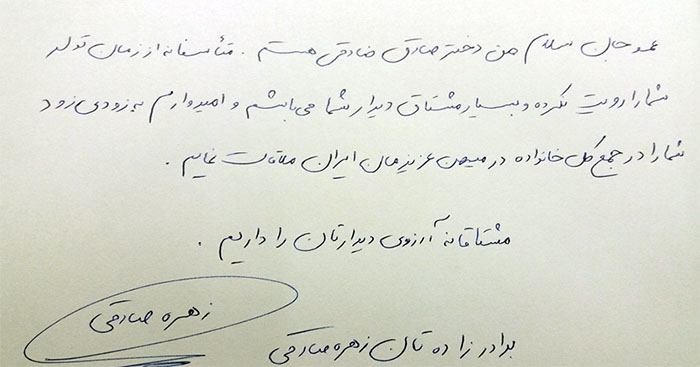 عمو جان سلام من دختر صادق صادقی هستم . متأسفانه از زمان تولد
شما را رویت نکرده و بسیار مشتاق دیدار شما می باشم و امیدوارم به زودی زود
شما را در جمع کل خانواده در میهن عزیزمان ایران ملاقات نمایم .
مشتاقانه آرزوی دیدارتان را داریم .
زهره صادقی
برادرزاده تان زهره صادقی